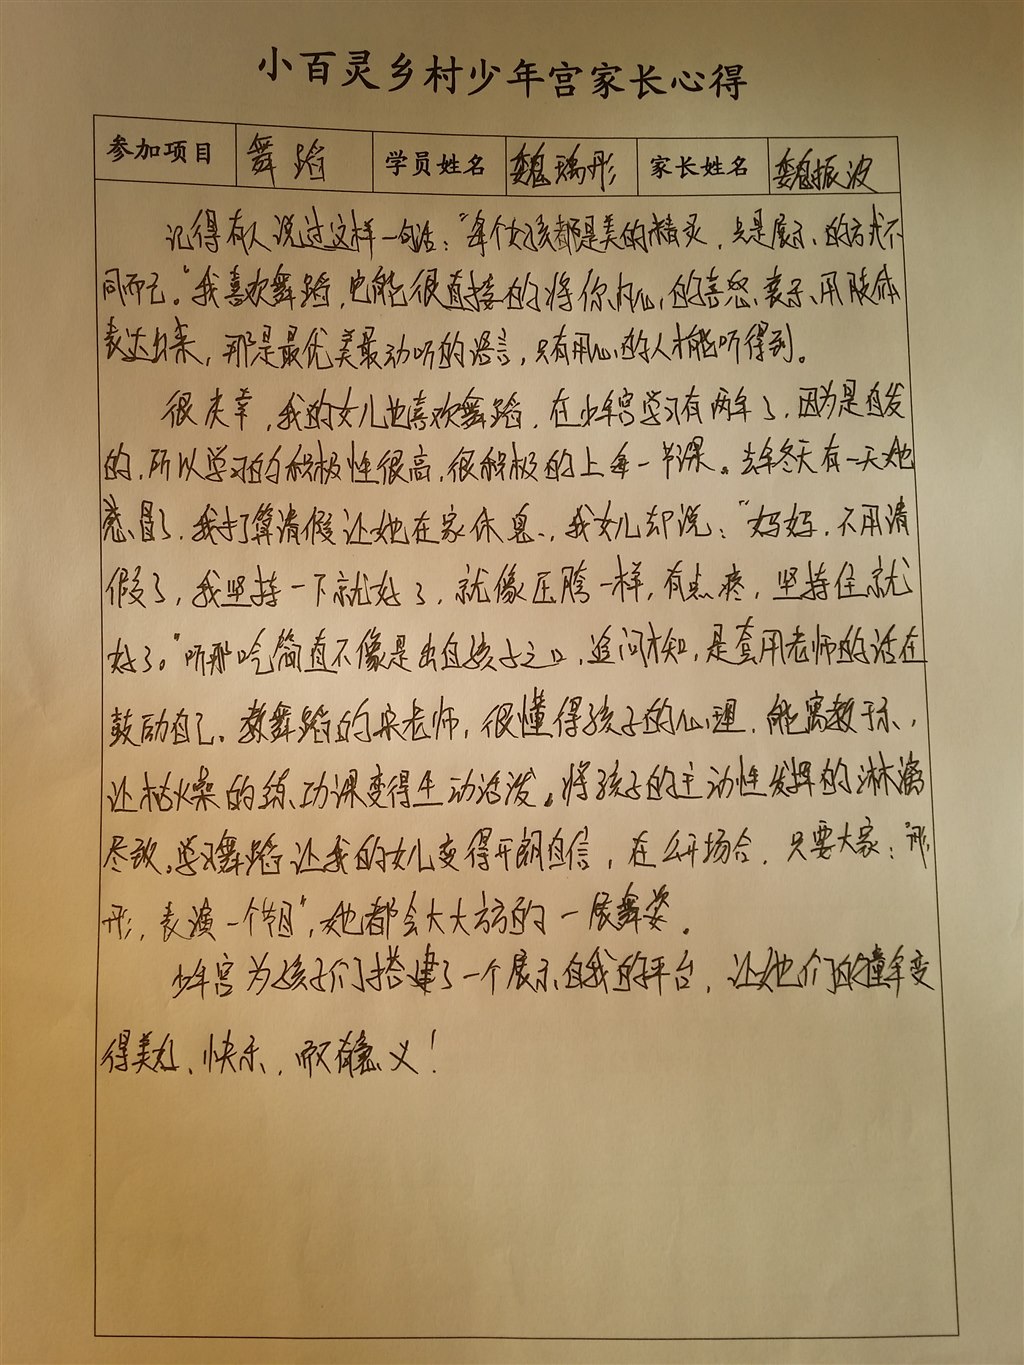 小百灵乡村少年宫家长心得
参加项目 舞蹈 学员姓名 魏瑀彤 家长姓名 魏振波
记得有人说过这样一句话："每个女孩都是美的精灵，只是展示的方式不
同而已。"我喜欢舞蹈，它能很直接的将你内心的喜怒哀乐用肢体
表达出来，那是最优美最动听的语言，只有用心的人才能听得到。
很庆幸，我的女儿也喜欢舞蹈，在少年宫学习有两年了，因为是自发
的，所以学习的积极性很高，很积极的上每一节课。去年冬天有一天她
感冒了，我打算请假让她在家休息，我女儿却说："妈妈，不用请
假了，我坚持一下就好了，就像压胯一样，有点疼，坚持住就
好了。"听那口气简直不像是出自孩子之口，追问才知，是套用老师的话在
鼓励自己。教舞蹈的宋老师，很懂得孩子的心理，能寓教于乐，
让枯燥的练功课变得生动活泼。将孩子的主动性发挥的淋漓
尽致。学习舞蹈让我的女儿变得开朗自信，在公开场合，只要大家："彤
彤，表演一个节目"，她都会大大方方的一展舞姿。
少年宫为孩子们搭建了一个展示自我的平台，让她们的童年变
得美好、快乐，而又有意义！